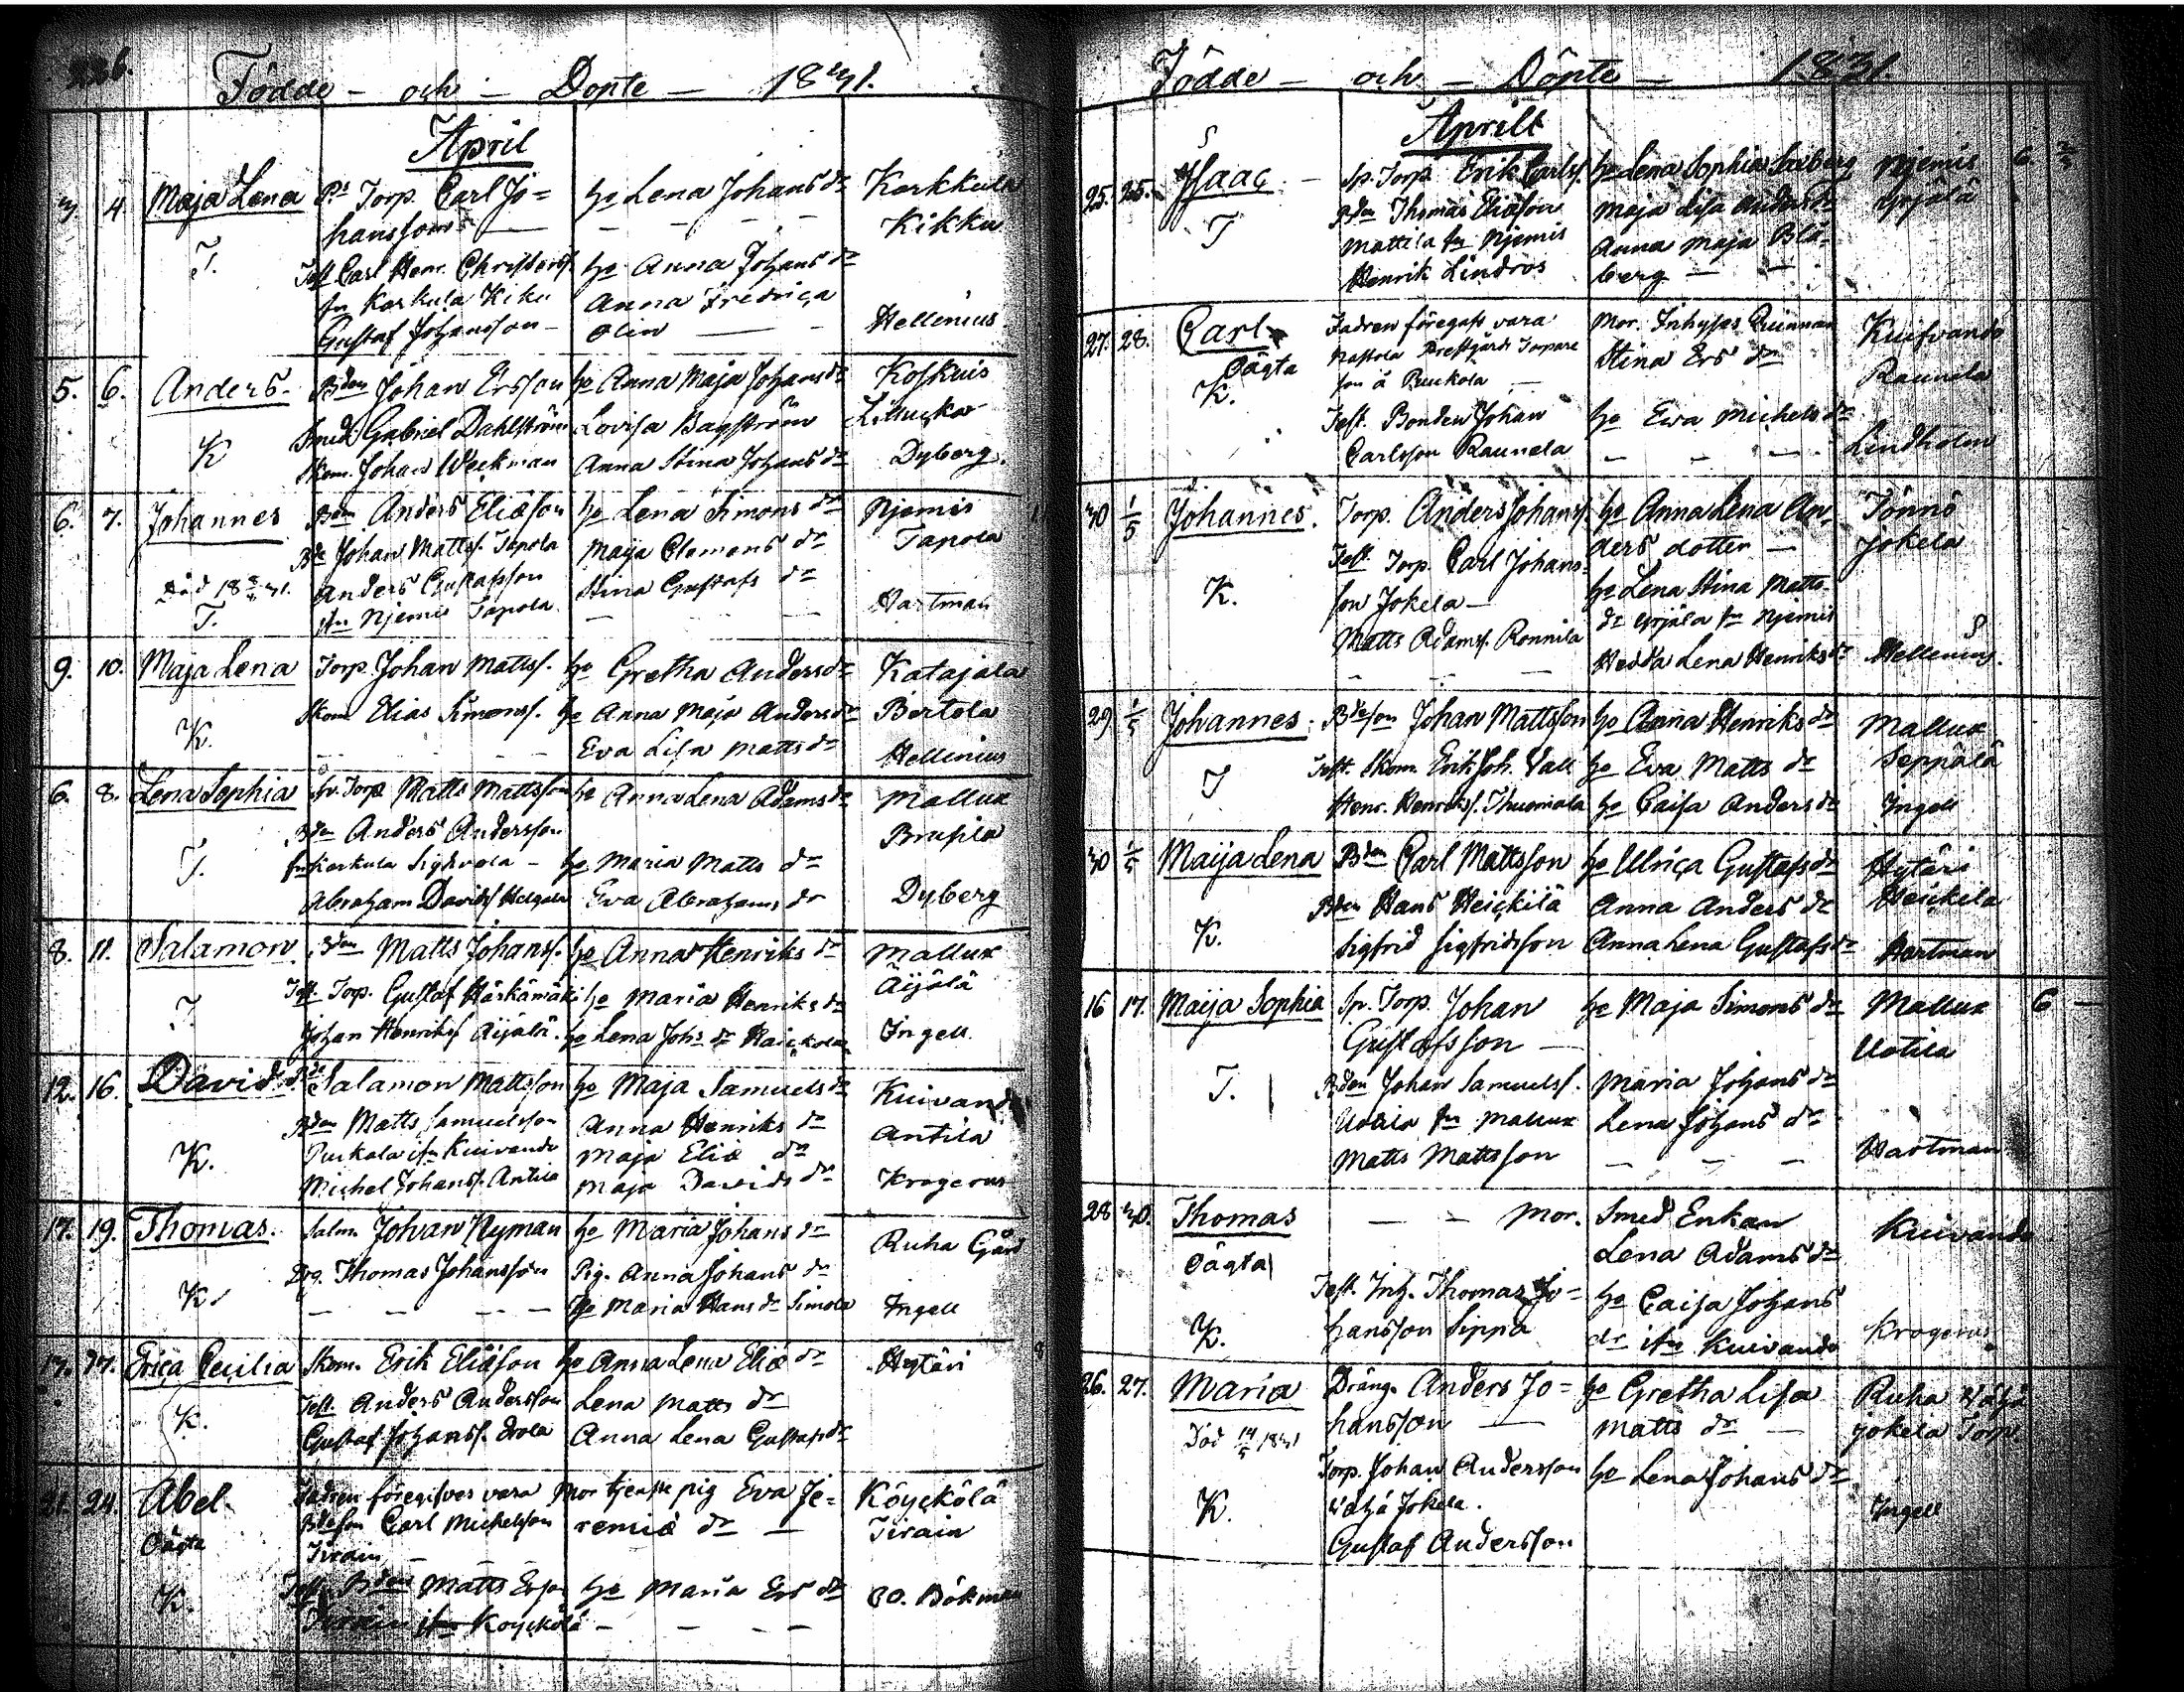 226.
Födde – och – Dopte – 1831.
April
3 4 Maja Lena Ps Torp. Carl Jo= ho Lena Johans dr Korkkula
hansson — — — — Kikku
T. Test Carl Henr. Christerss. ho Anna Johans dr
fn Korkula Kiku Anna Fredrica
Gustaf Johansson – Olin — – Hellenius
5. 6. Anders. Bden Johan Ersson ho Anna Maja Johans dr Koskuis
Smed. Gabriel Dahlström Lovisa Bagström
K Skom. Johan Weckman Anna Stina Johans dr Dyberg.
6. 7. Johannes Bden Anders Eliæson ho Lena Simons dr Njemis
Bde Johan Matts. Tapola Maija Clemens dr Tapola
Död 18 31. Anders Gustafsson Stina Gustafs dr
T. ifn Njemis Tapola – – – Hartman
9. 10. Maja Lena Torp. Johan Mattss. ho Gretha Anders dr Katajala
Skom. Elias Simonss. ho Anna Maja Anders dr Bertola
K. – – – Eva Lisa Matts dr Hellinius
6. 8. Lena Sophia Sp. Torp Matts Mattsson ho Anna Lena Adams dr Mallux
Bden Anders Andersson Brusila
T. fn Korkula Sighvola – ho Maria Matts dr
Abraham Davids Eva Abrahams dr Dyberg
8. 11. Salamon. Bden Matts Johanss. ho Anna Henriks dr Mallux
Test Torp. Gustaf Härkämäki ho Maria Henriks dr Äijälä
T. Johan Henrikss Äijälä. ho Lena Johs dr Ingell
12. 16. David Bde Salamon Mattsson ho Maja Samuels dr Kuivando
Bden Matts Samuelsson Anna Henriks dr Antila
K. Puukala ifn Kuivando Maja Eliæ dr
Michel Johanss. Antila Maja Davids dr Krogerus
17. 19. Thomas. Salm. Johan Nyman ho Maria Johans dr Ruha Gård
Drg. Thomas Johansson Pig. Anna Johans dr
K. – – – – ho Maria Hans dr Simola Ingell
17. 27. Erica Cecilia Skom. Erik Eliæson ho Anna Lena Eliæ dr Hytäri
Test. Anders Andersson Lena Matts dr
K. Gustaf Johanss. Erola Anna Lena Gustafs dr
21. 24. Abel. Fadren föregifves vara Mor tjenste pig Eva Je= Köyckölä
Oägta Bdeson Carl Michelsson remiæ dr — Tirain
Tirain — – –
K. Test. Bden Matts Ersson ho Maria Ers dr C.O. Bökman
Tirain ifn Koyckölä – – – –
Födde – och – Döpte – 1831.
Aprill
25. 25. Isaac – Sp. Torp. Erik Carlss. ho Lena Sophia Njemis 6
Bden Thomas Eliæson Maja Lisa Anders dr Yrjälä
T Mattila fn Njemis Anna Maja Blå-
Henrik Lindros berg — –
27. 28. Carl Fadren föregafs vara Mor. Inhyses Quinnan Kuifvando
Oägta Nastola Prestgårds Torpare Stina Ers dr Raunela
K. son å Puukola —
Test. Bonden Johan ho Ewa Michels dr
Carlsson Raunela – – – Lindholm
30 1/5 Johannes. Torp. Anders Johanss. ho Anna Lena An- Tönnö
Test. Torp. Carl Johans- ders dotter — Jokela
K. son Jokela — ho Lena Stina Matts-
Matts Adamss. Ronnila dr Yrjäla fn Njemis
– – – Hedda Lena Henriks dr Hellenius.
29 1/5 Johannes. Bdeson Johan Mattsson ho Anna Henriks dr Mallux
Test. Skom. Erik Joh. Vall ho Eva Matts dr Seppälä
T Henr. Henrikss. Thuomala ho Caisa Anders dr Ingell
30 1/5 Maija Lena Bden Carl Mattsson ho Ulrica Gustafs dr Hytäri
Bden Hans Heickilä Anna Anders dr Heickila
K. Sigfrid Sigfridsson Anna Lena Gustafs dr Hartman
16 17. Maija Sophia Sp. Torp. Johan ho Maja Simons dr Mallux 6 –
Gustafsson — Uotila
T. Bden Johan Samuelss. Maria Johans dr
Uotila fn Mallux Lena Johans dr
Matts Mattsson – – – Hartman
28 30. Thomas – – Mor. Smed Enkan Kuivando
Oägta Lena Adams dr
Test. Inh. Thomas Jo= ho Caisa Johans
K. hansson Sippa dr ifn Kuivando Krogerus
26. 27. Maria Dräng. Anders Jo= ho Gretha Lisa Ruha Wähä
Död 14/5 1831 hansson — Matts dr — jokela Torp.
Torp. Johan Andersson ho Lena Johans dr
K. Wähä Jokela. Ingell
Gustaf Andersson